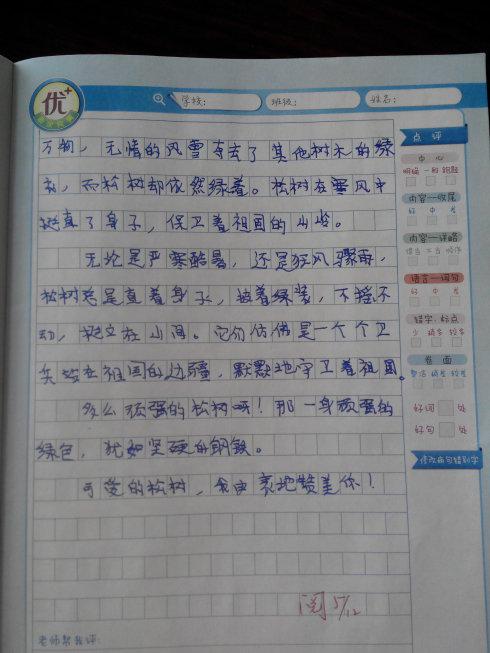 优+
学校:
班级:
姓名:
万物，无情的风雪夺去了其他树木的绿
衣，而松树却依然绿着。松树在寒风中
挺直了身子，保卫着祖国的山岭。
无论是严寒酷暑，还是狂风骤雨，
松树总是直着身子，披着绿装，不摇不
动，挺立在山间。它们仿佛是一个个卫
兵站在祖国的边疆，默默地守卫着祖国。
多么顽强的松树呀！那一身顽强的
绿色，犹如坚硬的钢铁。
可爱的松树，我由衷地赞美你！
阅 5/12
老师帮我评:
点评
中心
明确 一般 跑题
内容—收尾
好 中 差
内容—详略
得当 不当 顺序
语言—词句
好 中 差
错字、标点
少 稍多 较多
卷面
整洁 稍差 较差
好词 处
好句 处
修改病句错别字